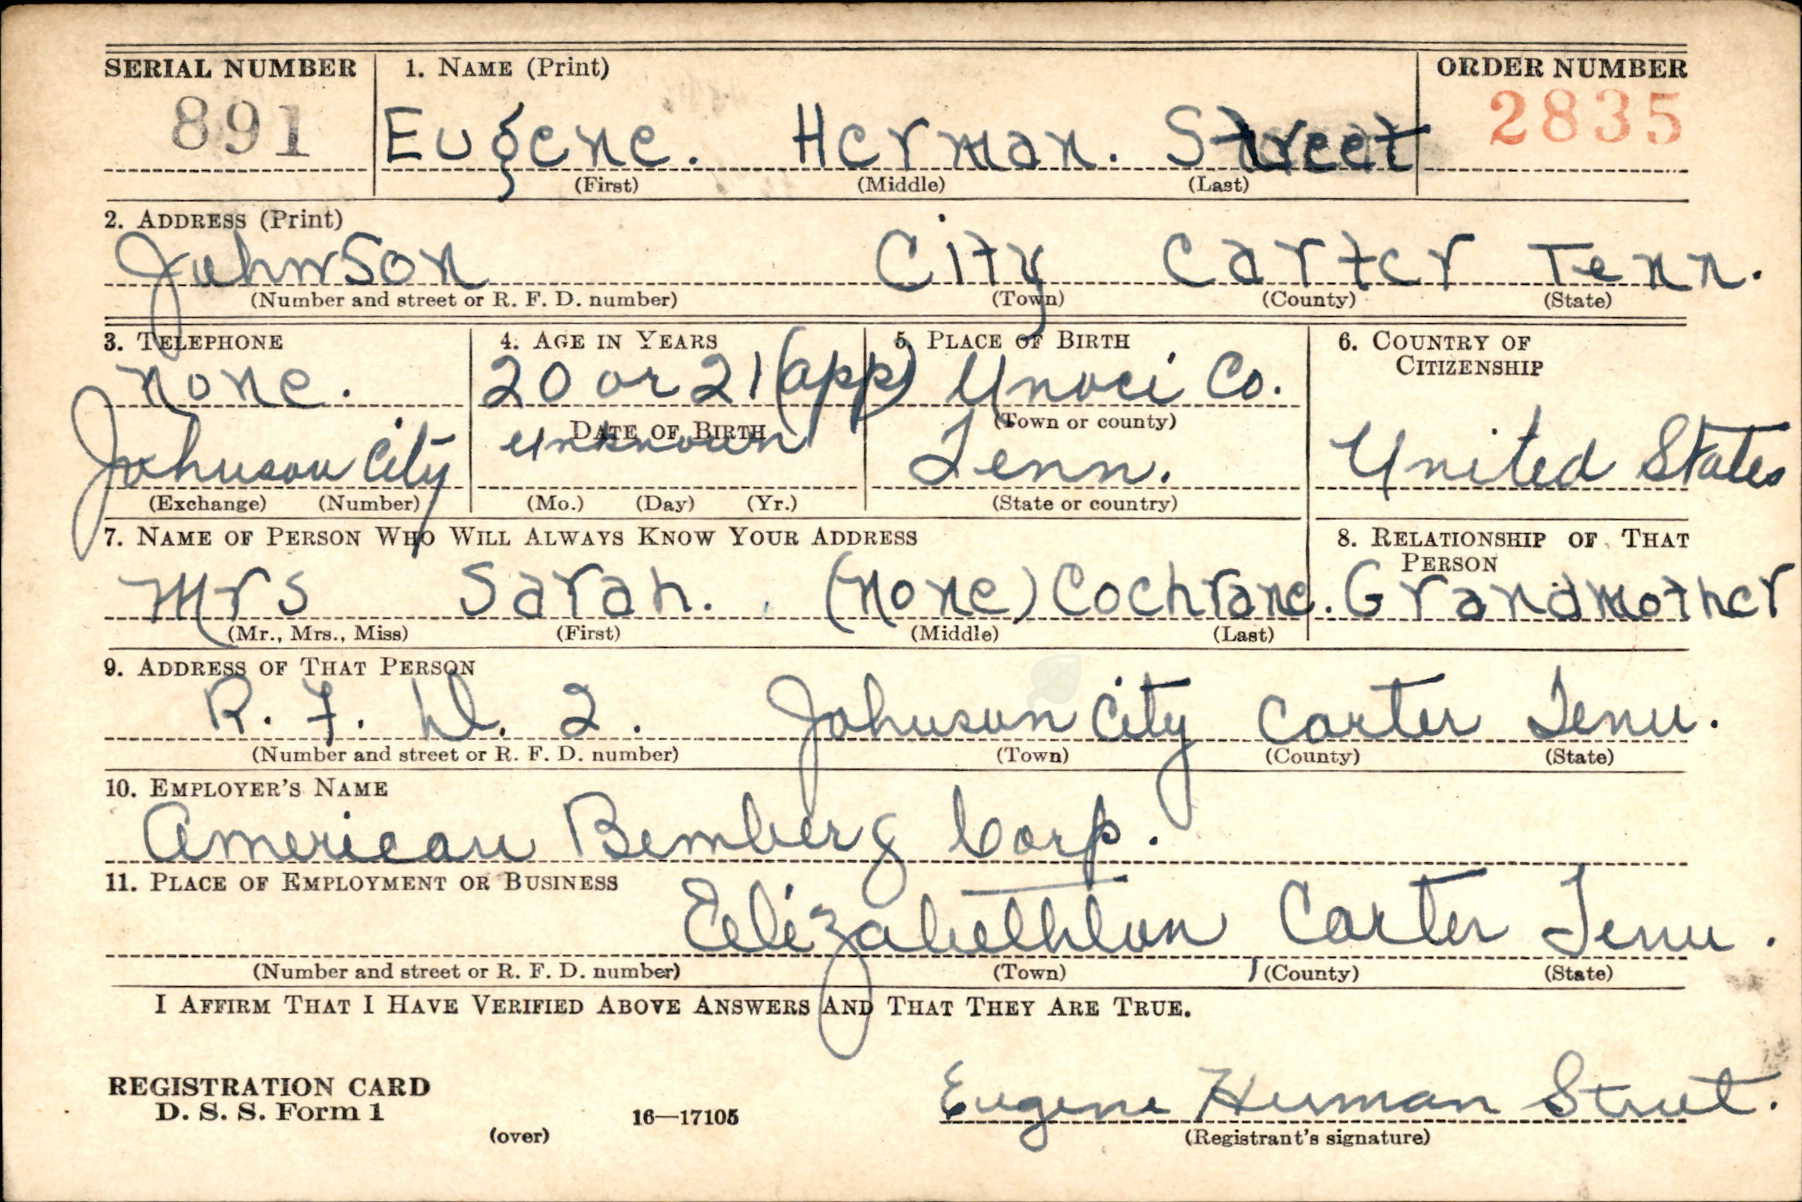 SERIAL NUMBER 1. NAME (Print) ORDER NUMBER
891 Eugene. Herman. Street 2835
(First) (Middle) (Last)
2. ADDRESS (Print)
Johnson City Carter Tenn.
(Number and street or R. F. D. number) (Town) (County) (State)
3. TELEPHONE 4. AGE IN YEARS 5. PLACE OF BIRTH 6. COUNTRY OF
CITIZENSHIP
none. 20 or 21 (app) Unoci Co.
DATE OF BIRTH (Town or county)
Johnson City unknown Tenn. United States
(Exchange) (Number) (Mo.) (Day) (Yr.) (State or country)
7. NAME OF PERSON WHO WILL ALWAYS KNOW YOUR ADDRESS 8. RELATIONSHIP OF THAT
PERSON
Mrs Sarah. (none) Cochrane. Grandmother
(Mr., Mrs., Miss) (First) (Middle) (Last)
9. ADDRESS OF THAT PERSON
R. F. D. 2. Johnson City Carter Tenn.
(Number and street or R. F. D. number) (Town) (County) (State)
10. EMPLOYER'S NAME
American Bemberg Corp.
11. PLACE OF EMPLOYMENT OR BUSINESS
Elizabethton Carter Tenn.
(Number and street or R. F. D. number) (Town) (County) (State)
I AFFIRM THAT I HAVE VERIFIED ABOVE ANSWERS AND THAT THEY ARE TRUE.
REGISTRATION CARD
D. S. S. Form 1 16—17105 Eugene Herman Street.
(over) (Registrant's signature)